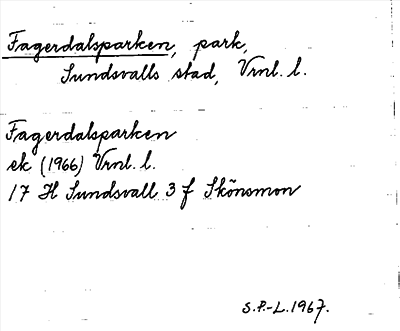 Fagerdalsparken, park,
Sundsvalls stad, Vrnl. l.
Fagerdalsparken
ek (1966) Vrnl. l.
17 H Sundsvall 3 f Skönsmon
S.P.-L. 1967.